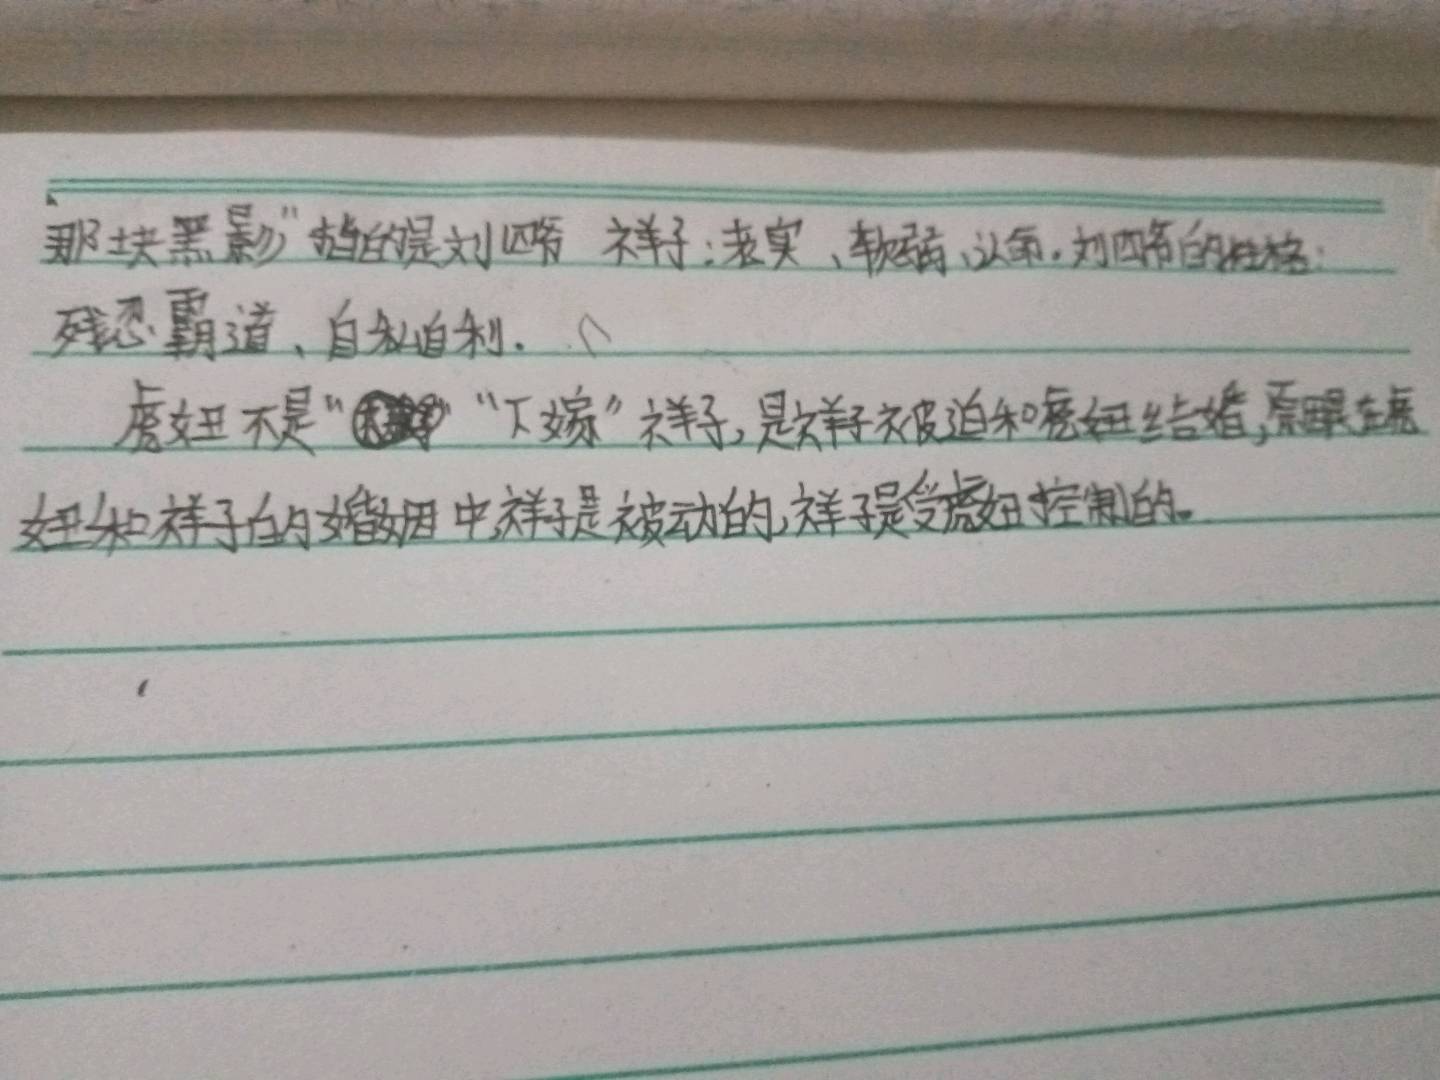 那块黑影”指的是刘四爷 祥子：老实、软弱、认命。刘四爷的性格：
残忍霸道、自私自利.
虎妞不是“ ” “下嫁”祥子，是祥子被迫和虎妞结婚，原因是在虎
妞和祥子的婚姻中，祥子是被动的，祥子是受虎妞控制的。